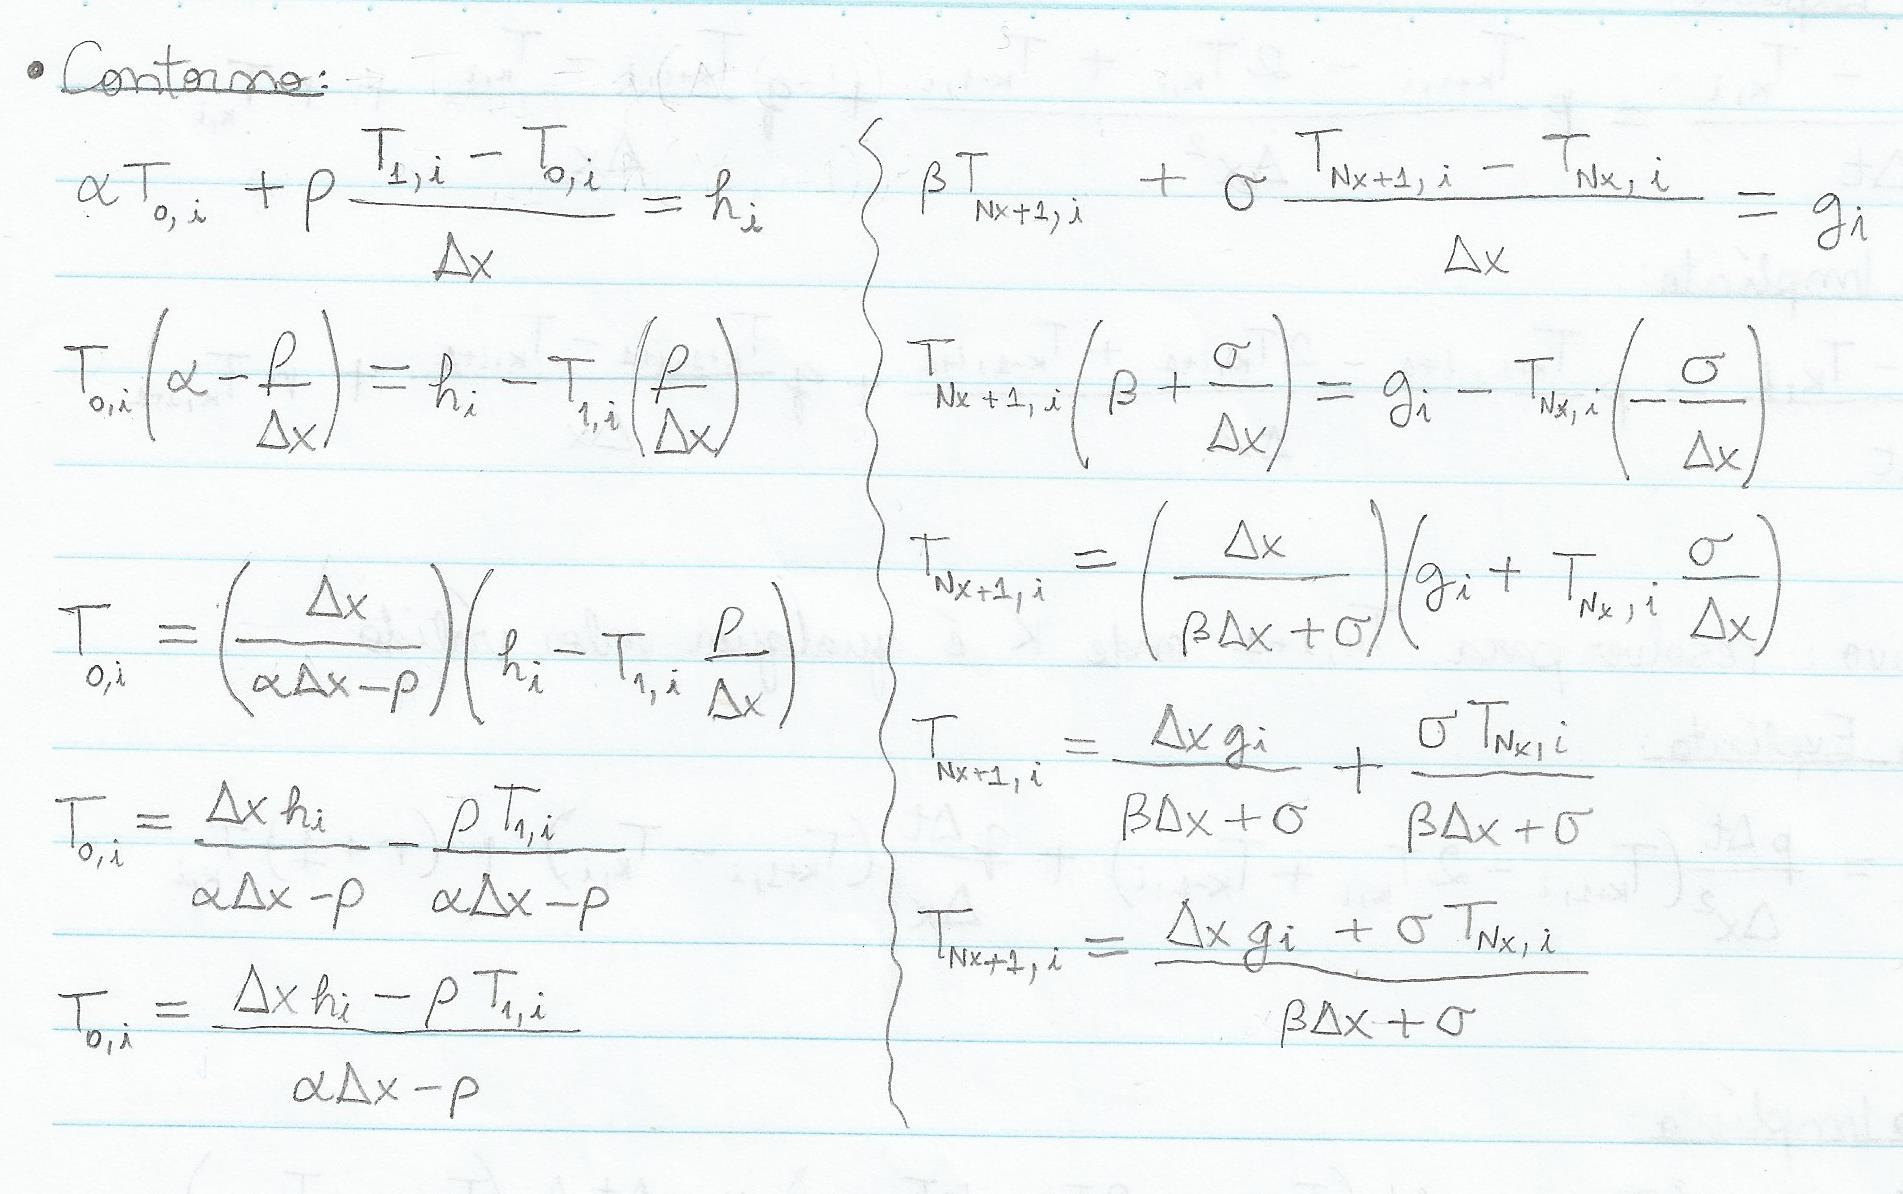 • Contorno:
αT_{0,i} + ρ (T_{1,i} − T_{0,i})/Δx = h_i
T_{0,i}(α − ρ/Δx) = h_i − T_{1,i}(ρ/Δx)
T_{0,i} = (Δx/(αΔx − ρ))(h_i − T_{1,i} ρ/Δx)
T_{0,i} = Δx h_i/(αΔx − ρ) − ρT_{1,i}/(αΔx − ρ)
T_{0,i} = (Δx h_i − ρT_{1,i})/(αΔx − ρ)
βT_{Nx+1,i} + σ (T_{Nx+1,i} − T_{Nx,i})/Δx = g_i
T_{Nx+1,i}(β + σ/Δx) = g_i − T_{Nx,i}(−σ/Δx)
T_{Nx+1,i} = (Δx/(βΔx + σ))(g_i + T_{Nx,i} σ/Δx)
T_{Nx+1,i} = Δx g_i/(βΔx + σ) + σT_{Nx,i}/(βΔx + σ)
T_{Nx+1,i} = (Δx g_i + σT_{Nx,i})/(βΔx + σ)